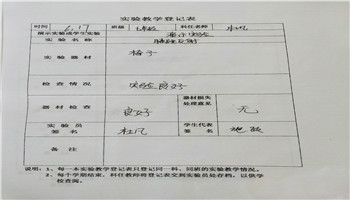 实验教学登记表
时间 6.17 班级 科任老师 杜凡
演示实验或学生实验 演示实验
实验名称
实验器材 椅子
检查情况 实验良好
器材检查 良好 器材损失处理意见 无
实验员签名 杜凡 学生代表签名
备注
说明：1、每一本实验教学登记表只登记同一科、同班的实验教学情况。
2、每个学期结束，科任教师将登记表交到实验员处存档，以供学
检查阅。